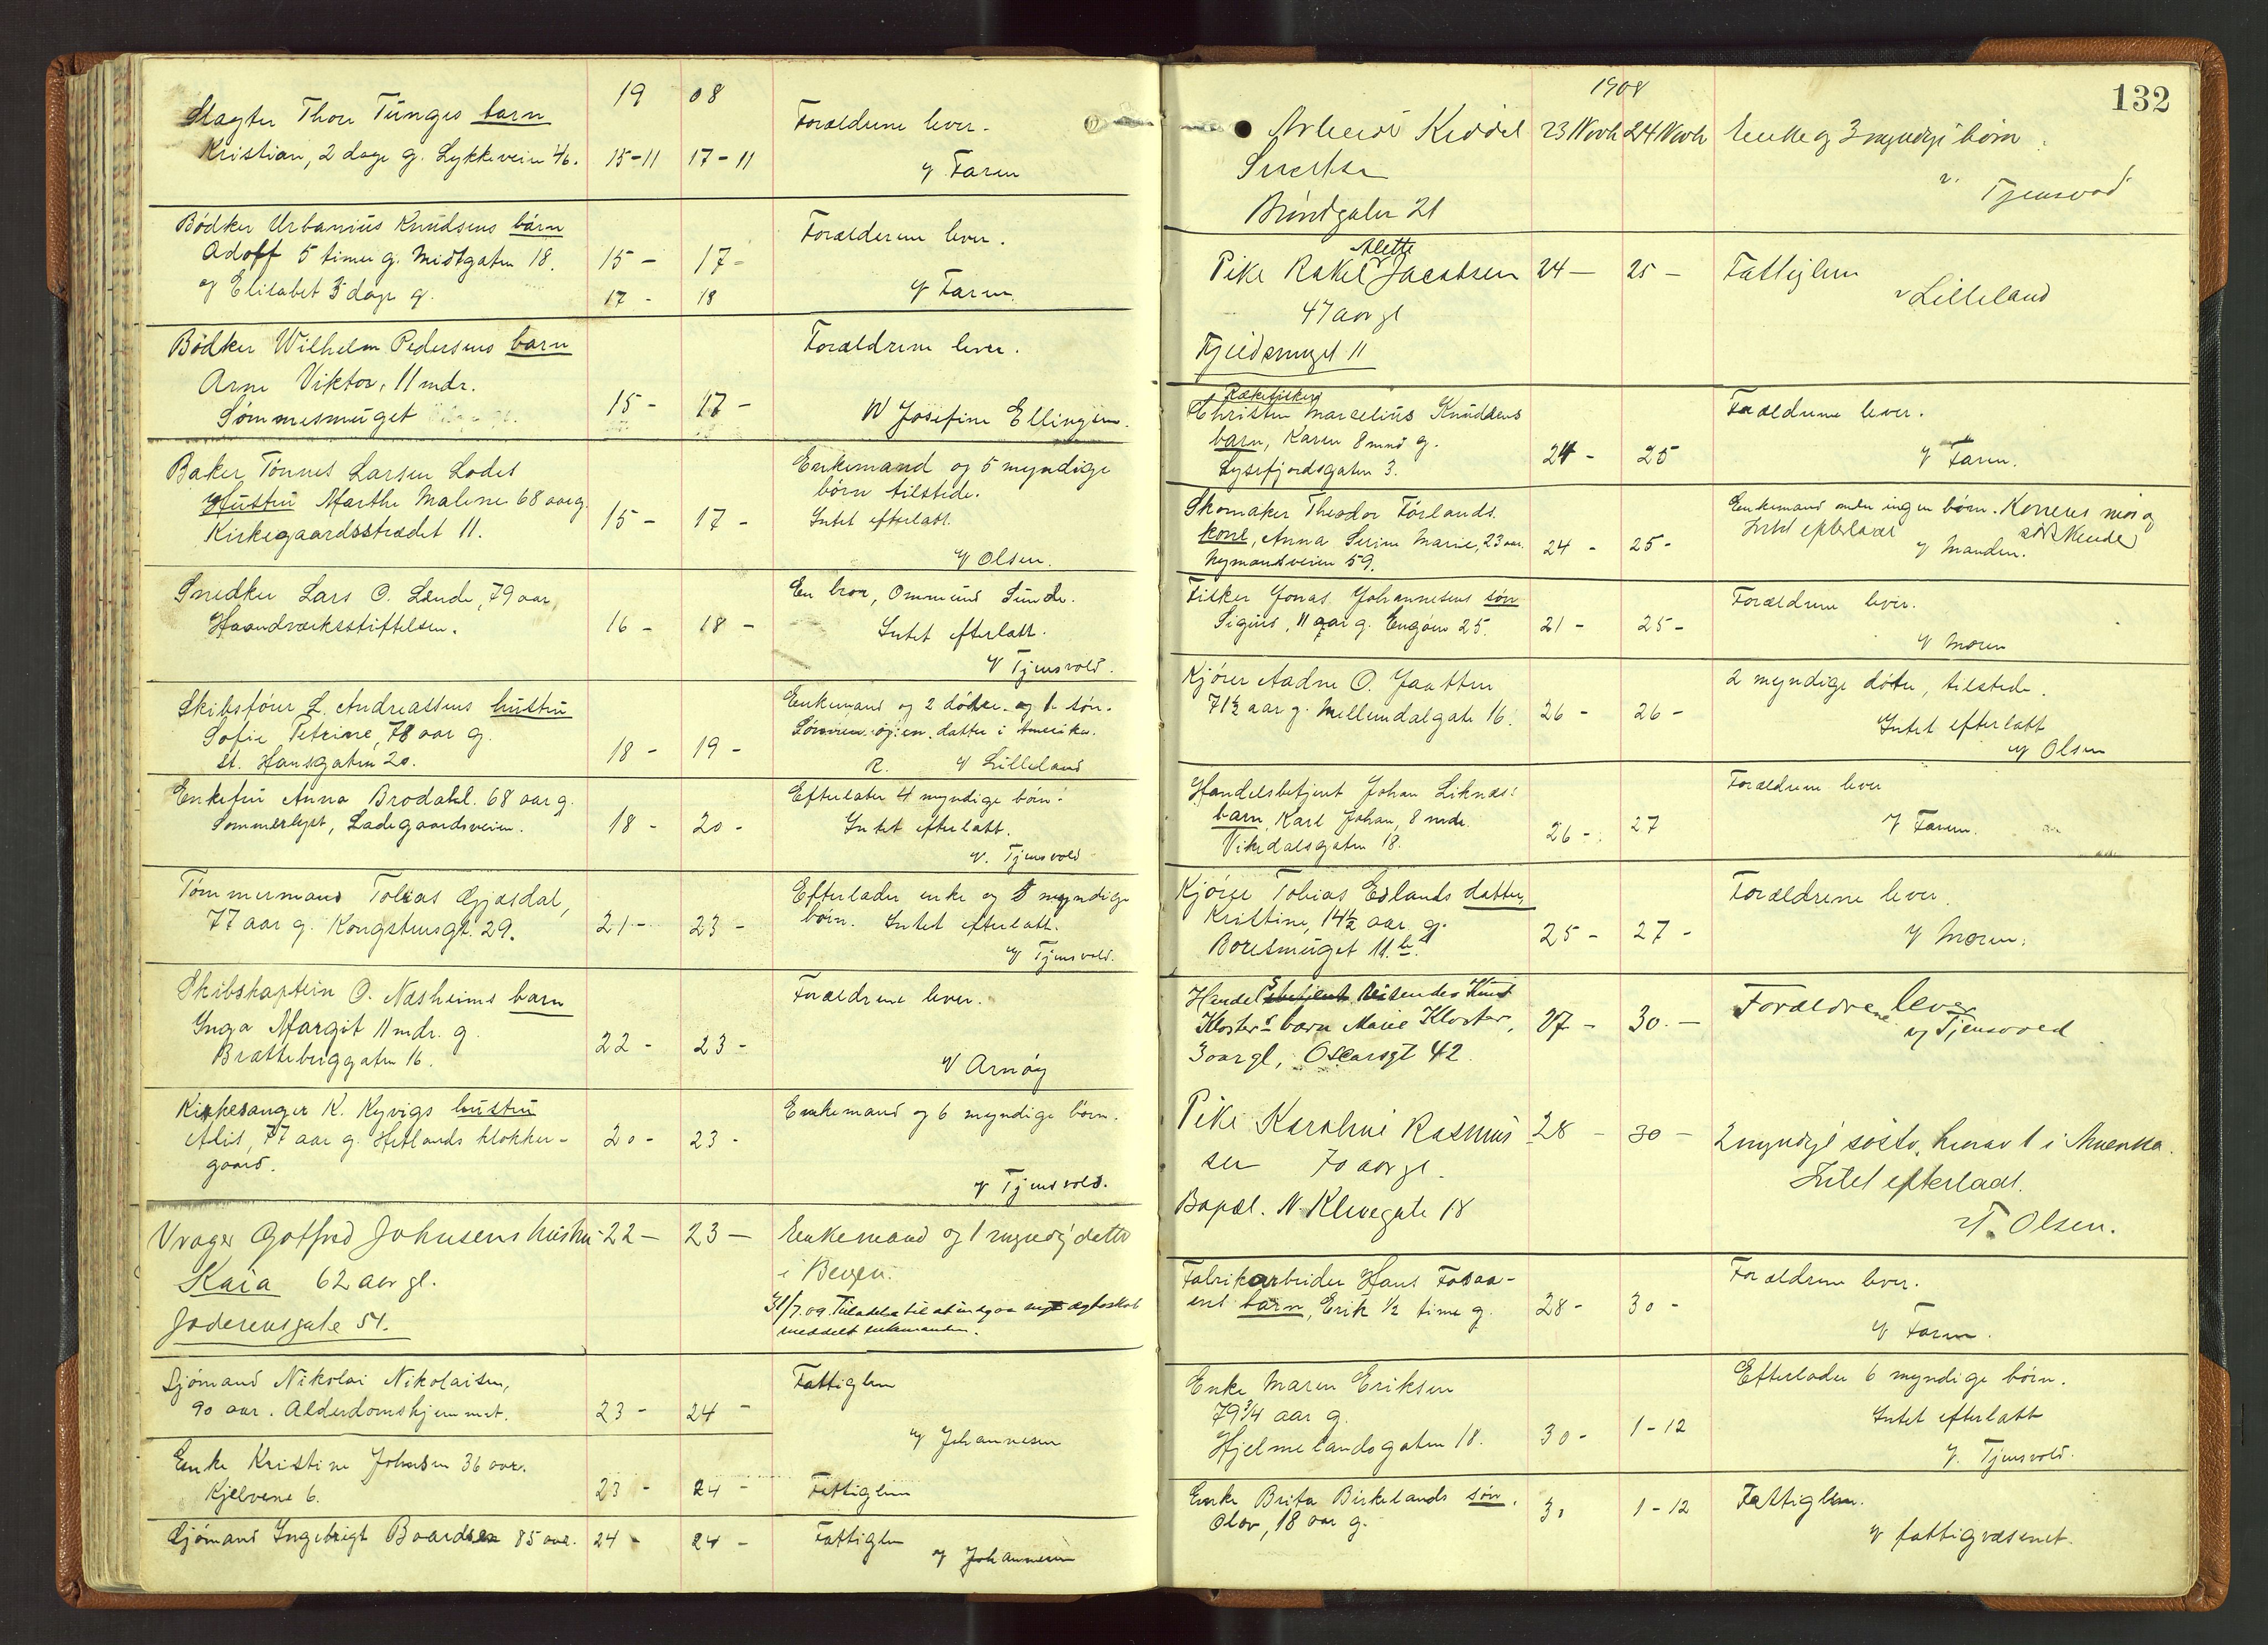 19 08
Slagter Thor Tunges barn
Kristian, 2 dage g. Lykkevein 46.
15-11 17-11
Forældrene lever.
v Faren
Bødker Urbanius Knudsens barn
Adolf 5 timer g. Midtgaten 18.
15 - 17 -
og Elisabet 3 dage g.
17 - 18
Forælderene lever.
v Faren.
Bødker Wilhelm Pedersens barn
Arne Viktor, 11 mdr.
Sømmesmuget
15 - 17 -
Forældrene lever.
v Josefine Ellingsen.
Baker Tønnes Larsen Lodes
Hustru Marthe Malene 68 aar g.
Kirkegaardsstrædet 11.
15 - 17 -
Enkemand og 5 myndige
børn tilstede.
Intet efterlatt.
v Olsen.
Snedker Lars O. Lende, 79 aar,
Haandværksstiftelsen.
16 - 18 -
En bror, Ommund Sunde.
Intet efterlatt.
v Tjensvold.
Skibsfører L. Andreassens hustru
Sofie Petrine, 78 aar g.
St. Hansgaten 20.
18 - 19 -
Enkemand og 2 døtre og 1 søn.
Sønnen og en datter i Amerika.
R. v Lilleland
Enkefru Anna Brodahl. 68 aar g.
Sommerlyst, Ladegaardsveien.
18 - 20 -
Efterlater 4 myndige børn.
Intet efterlatt.
v. Tjensvold
Tømmermand Tobias Gjesdal,
77 aar g. Kongstensgt. 29.
21 - 23 -
Efterlader enke og 5 myndige
børn. Intet efterlatt.
v Tjensvold.
Skibskaptein O. Næsheims barn
Inga Margit 11 mdr. g.
Bratteberggaten 16.
22 - 23 -
Forældrene lever.
v Arnøy
Kirkesanger K. Kyvigs hustru
Alis, 77 aar g. Hetlands klokker-
gaard.
20 - 23 -
Enkemand og 6 myndige børn.
v Tjensvold.
Vrager Gotfred Johnsens hustru
Kaia 62 aar gl.
Jæderensgate 51.
22 - 23 -
Enkemand og 1 myndig datter
i Bergen.
31/7.09. Tilladelse til at indgaa nyt ægteskab
meddelt enkemanden.
Sjømand Nikolai Nikolaisen,
90 aar. Alderdomshjemmet.
23 - 24 -
Fattiglem
v Johannesen
Enke Kristine Johnsen 36 aar.
Kjelvene 6.
23 - 24 -
Fattiglem
Sjømand Ingebrigt Baardsen 85 aar. 24 - 24 -
Fattiglem
v Johannesen
132
1908
Arbeider Kiddel
Sivertsen
Brundgaten 21
23 Novb 24 Novb
Enke og 3 myndige børn
v. Tjensvold
Pike Rakel Alette Jacobsen
47 aar gl
Fjeldsmuget 11
24 - 25 -
Fattiglem
v Lilleland
Rækefisker
Christen Marcelius Knudsens
barn, Karen 8 mnd g.
Lysefjordsgaten 3.
24 - 25
Forældrene lever.
v Faren.
Skomaker Theodor Førlands
kone, Anna Serine Marie, 23 aar.
Nymandsveien 59.
24 - 25 -
Enkemand men ingen børn. Konens mor og
søskende
Intet efterladt
v Manden.
Fisker Jonas Johannesens søn
Sigurd, 11 aar g. Engøen 25.
21 - 25 -
Forældrene lever.
v Moren
Kjører Aadne O. Jaatten
71½ aar g. Mellemdalgate 16.
26 - 26 -
2 myndige døtre, tilstede.
Intet efterlatt
v Olsen
Handelsbetjent Johan Liknes's
barn, Karl Johan, 8 mdr.
Vikedalsgaten 18.
26 - 27
Forældrene lever
v Faren.
Kjører Tobias Edlands datter,
Kristine, 14½ aar g.
Boresmuget 11 b.
25 - 27 -
Forældrene lever.
v Moren.
Handelsbetjent Reisendes Knud
Klosters barn Marie Kloster,
3 aar gl, Oscarsgt 42.
27 - 30. -
Forældrene lever
v Tjensvold
Pike Karoline Rasmus
sen 70 aar gl.
Bopæl. N. Klevegate 18
28 - 30 -
2 myndige søstre, hvorav 1 i Amerika.
Intet efterladt.
v T. Olsen.
Fabrikarbeider Hans Fosaa-
ens barn, Erik ½ time g.
28 - 30 -
Forældrene lever.
v Faren.
Enke Maren Eriksen
79 3/4 aar g.
Hjelmelandsgaten 18.
30 - 1-12
Efterlader 6 myndige børn.
Intet efterlatt
v. Tjensvold.
Enke Brita Birkelands søn,
Olav, 18 aar g.
30 1-12
Fattiglem.
v fattigvæsenet.